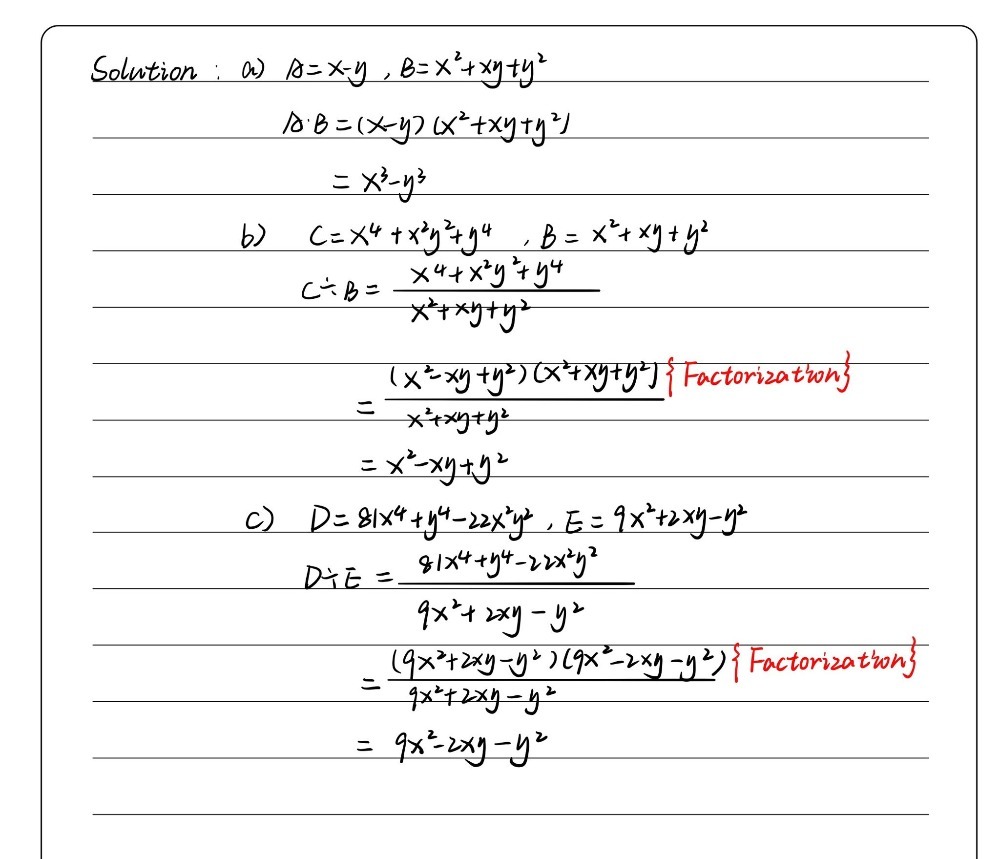 Solution : a) A=x-y , B=x²+xy+y²
A·B=(x-y)(x²+xy+y²)
= x³-y³
b) C=x⁴+x²y²+y⁴ , B= x²+xy+y²
C÷B= \frac{x⁴+x²y²+y⁴}{x²+xy+y²}
= \frac{(x²-xy+y²)(x²+xy+y²)}{x²+xy+y²} {Factorization}
= x²-xy+y²
c) D=81x⁴+y⁴-22x²y² , E=9x²+2xy-y²
D÷E = \frac{81x⁴+y⁴-22x²y²}{9x²+2xy-y²}
= \frac{(9x²+2xy-y²)(9x²-2xy-y²)}{9x²+2xy-y²} {Factorization}
= 9x²-2xy-y²